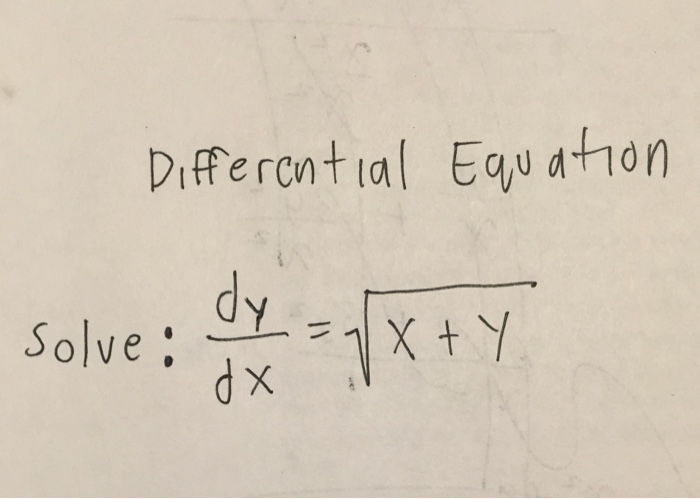 Differential Equation
Solve: dy/dx = √(x + y)